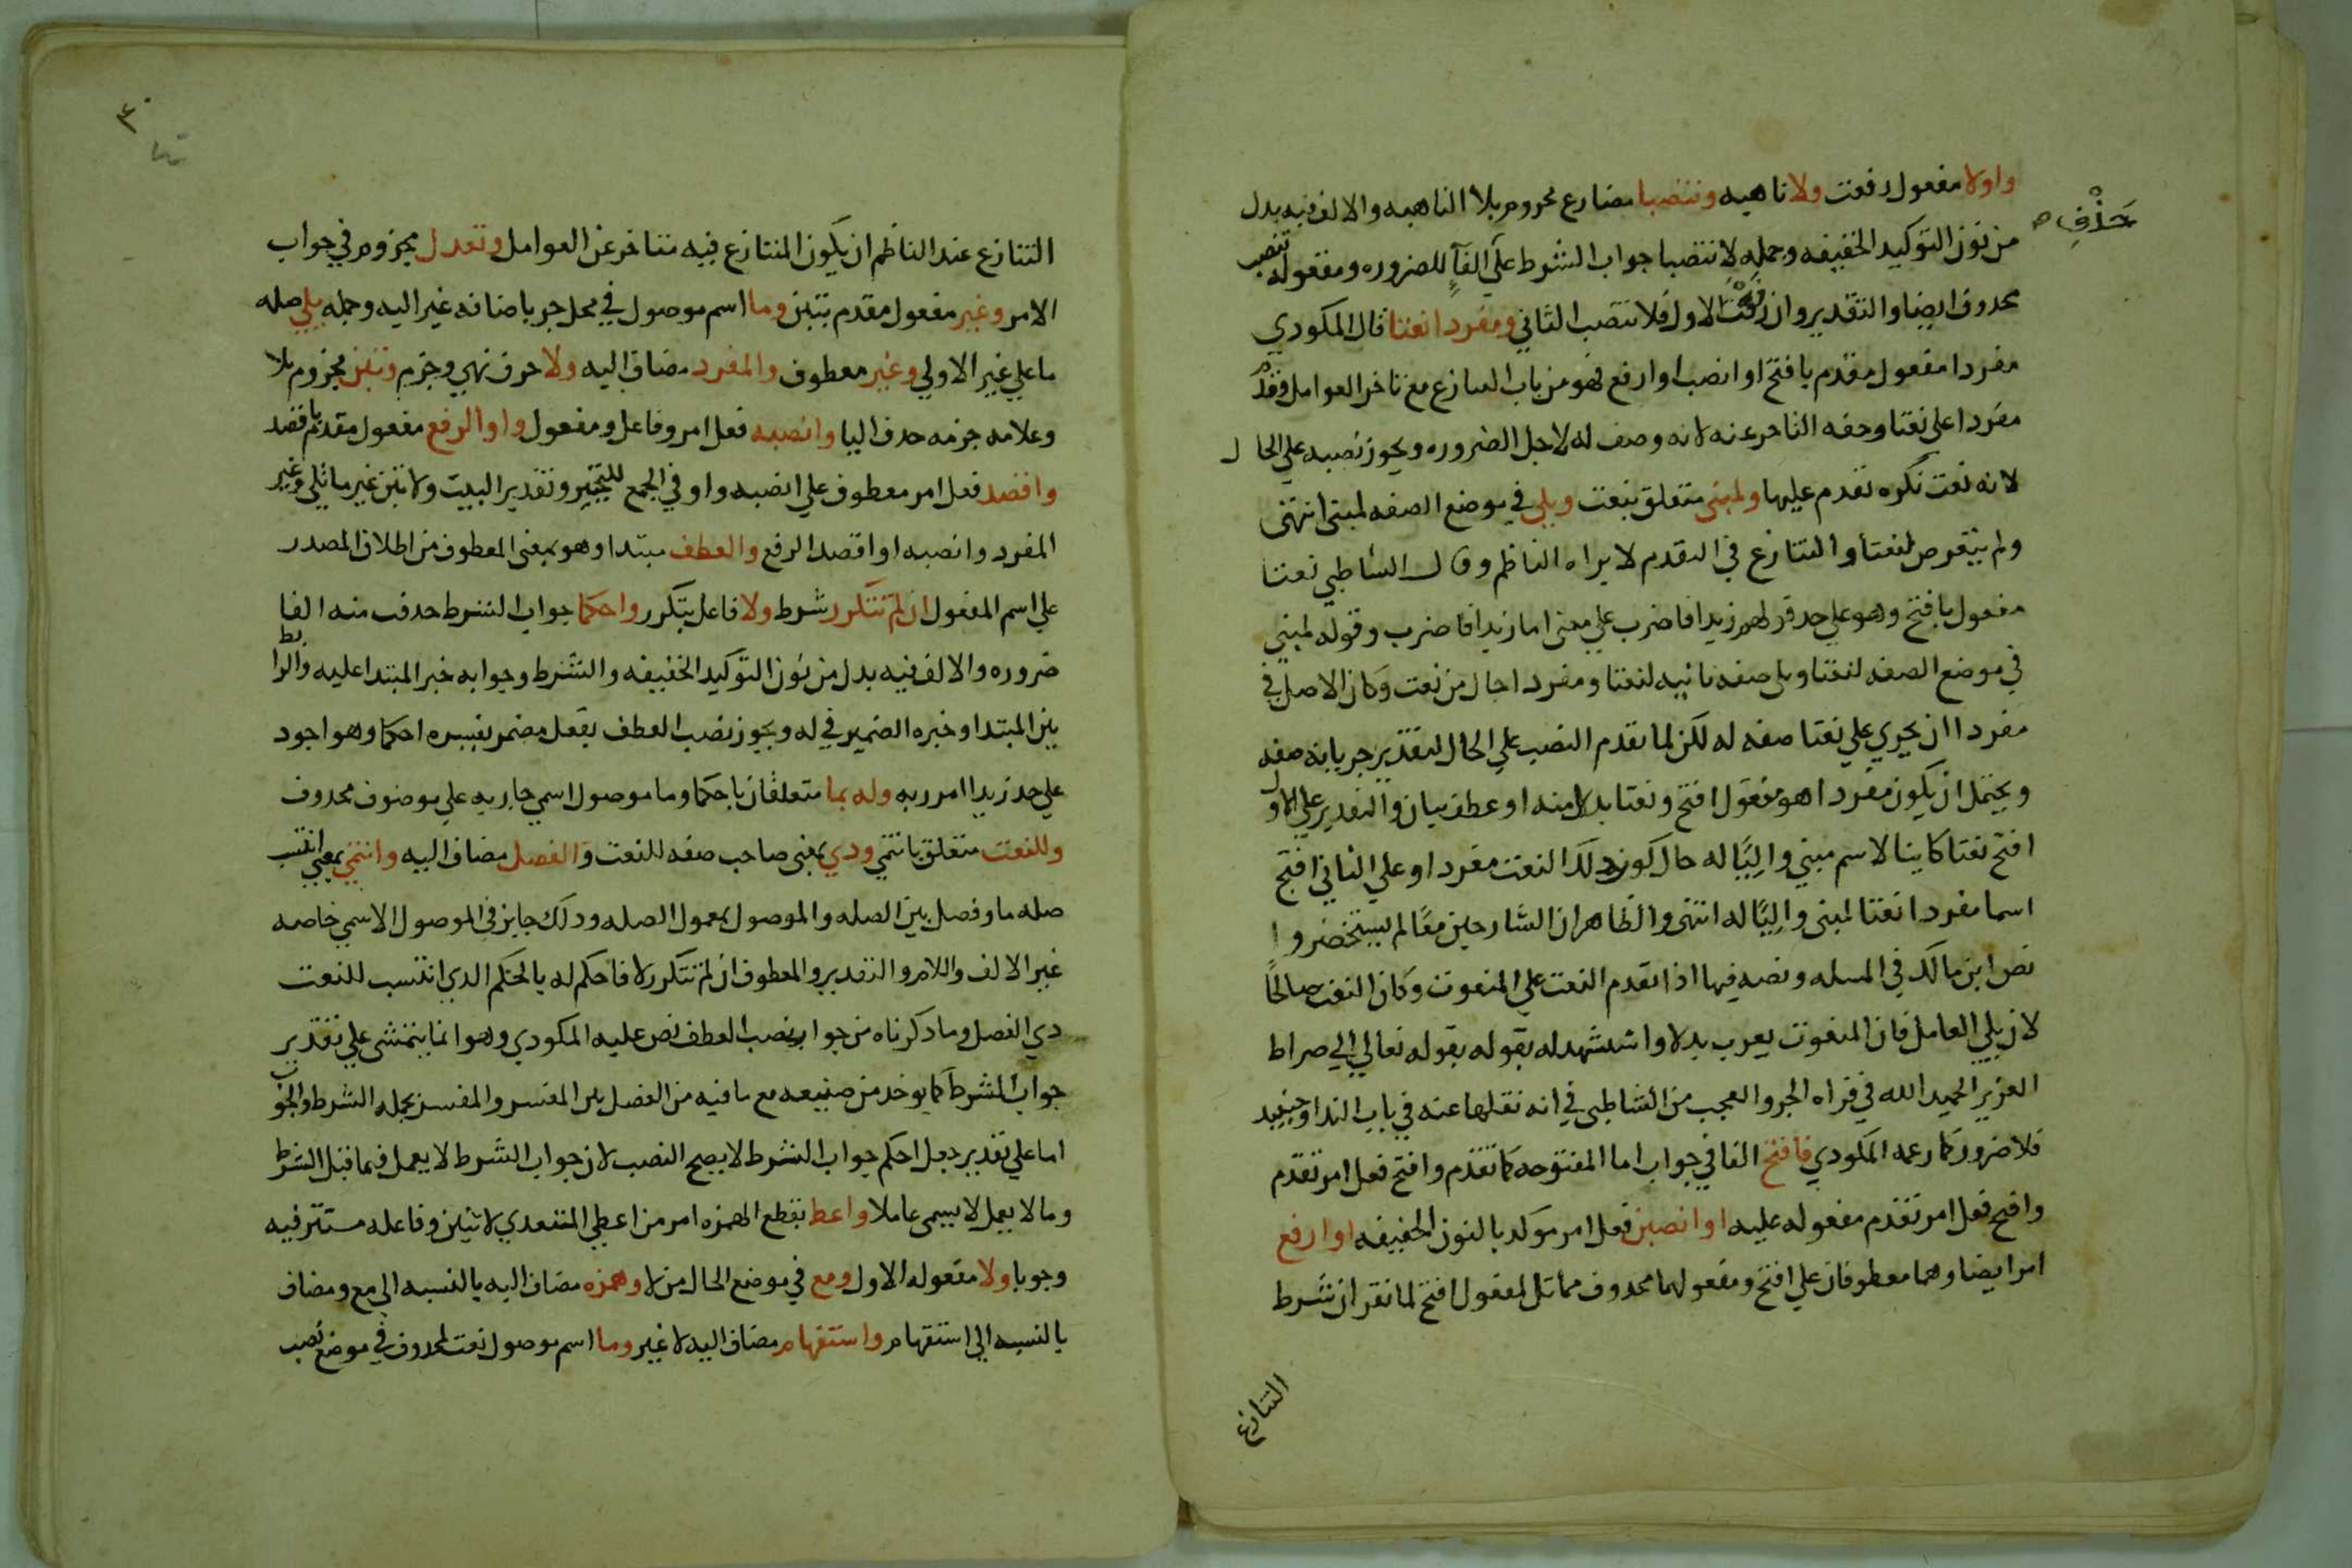 واولا مفعول رفعت ولا ناهيه وتنصبا مضارع مجزوم بلا الناهيه والالف فيه بدل
حَذْفِ صح
من نون التوكيد الخفيفه وجمله لا تنصبا جواب الشرط على حذف الفآ للضروره ومفعوله تنصب
محذوف ايضا والتقدير وان رفعت الاول فلا تنصب الثاني ومفردا نعتا قال المكودي
مفردا مفعول مقدم بافتح او انصب او ارفع فهو من باب التنازع مع تاخر العوامل وقدم
مفردا على نعتا وحقه التاخر عنه لانه وصف له لاجل الضروره ويجوز نصبه علي الحال
لانه نعت نكره تقدم عليها ولمبنى متعلق بنعت ويلى في موضع الصفه لمبنى انتهى
ولم يتعرض لنعتا والتنازع في المقدم لا يراه الناظم وقال الشاطبي نعتا
مفعول بافتح وهو علي حد قولهم زيدا فاضرب علي معنى اما زيدا فاضرب وقوله لمبني
في موضع الصفه لنعتا ويلى صفه ثانيه لنعتا ومفردا حال من نعت وكان الاصل في
مفردا ان يجري علي نعتا صفه له لكن لما تقدم انتصب علي الحال لتعذر جريانه صفه
ويحتمل ان يكون مفردا هو مفعول افتح ونعتا بدلا منه او عطف بيان والتقدير علي الاول
افتح نعتا كاينا لاسم مبني واليًا له حال كون ذلك النعت مفردا وعلي الثاني افتح
اسما مفردا نعتا لمبنى واليًا له انتهى والظاهر ان الشارحين معًا لم يستحضروا
نص ابن مالك في المسله ونصه فيها اذا تقدم النعت علي المنعوت وكان النعت صالحًا
لان يلي العامل فان المنعوت يعرب بدلا واستشهد له بقوله بقوله تعالي الي صراط
العزيز الحميد الله في قراه الجر والعجب من الشاطبي في انه نقلها عنه في باب الندا وحينيد
فلا ضروره كما زعمه المكودي فافتح الفا في جواب اما المفتوحه كما تقدم وافتح فعل امر تقدم
وافتح فعل امر تقدم مفعوله عليه او انصبن فعل امر موكد بالنون الخفيفه او ارفع
امر ايضا وهما معطوفان علي افتح ومفعولهما محذوف مماثل لمفعول افتح لما تقرر ان شرط
التنازع
٣٠
التنازع عند الناظم ان يكون المتنازع فيه متاخر عن العوامل وتعدل مجزوم في جواب
الامر وغير مفعول مقدم بتبن وما اسم موصول في محل جر باضافه غير اليه وجمله يلي صله
ما علي غير الاولي وغير معطوف والمفرد مضاف اليه ولا حرف نهي وجزم وتبن مجزوم بلا
وعلامه جزمه حذف اليا وانصبه فعل امر وفاعل ومفعول واو الرفع مفعول مقدم باقصد
واقصد فعل امر معطوف علي انصبه واو في الجمع للتخيير وتقدير البيت ولا تبن غير ما يلي وغير
المفرد وانصبه او اقصد الرفع والعطف مبتدا وهو بمعنى المعطوف من اطلاق المصدر
علي اسم المفعول ان لم تتكرر شرط ولا فاعل تتكرر واحكما جواب الشرط حذفت منه الفا
ضروره والالف فيه بدل من نون التوكيد الخفيفه والشرط وجوابه خبر المبتدا عليه والرابط
بين المبتدا وخبره الضمير في له ويجوز نصب العطف بفعل مضمر يفسره احكما وهو اجود
علي حد زيدا امرر به وله بما متعلقان باحكما وما موصول اسمي جاريه علي موصوف محذوف
وللنعت متعلق بانتمي ودي بمعنى صاحب صفه للنعت والفصل مضاف اليه وانتمي بمعني انتسب
صله ما وفصل بين الصله والموصول بمعمول الصله ودلك جايز في الموصول الاسمي خاصه
غير الالف واللام والتقدير والمعطوف ان لم تتكرر لا فاحكم له بالحكم الدي انتسب للنعت
دي الفصل وما ذكرناه من جواز نصب العطف نص عليه المكودي وهو انما يتمشى علي تقدير
جواب الشرط كما يوخذ من صنيعه مع ما فيه من الفصل بين المفسر والمفسر بجمله الشرط والجواب
اما علي تقدير جعل احكم جواب الشرط لا يصح النصب لان جواب الشرط لا يعمل فيما قبل الشرط
وما لا يعمل لا يسمى عاملا واعط بقطع الهمزه امر من اعطي المتعدي لاثنين وفاعله مستتر فيه
وجوبا ولا مفعوله الاول ومع في موضع الحال من لا وهمزه مضاف اليه بالنسبه الي مع ومضاف
بالنسبه الي استفهام واستفهام مضاف اليه لا غير وما اسم موصول نعت لمحذوف في موضع نصب